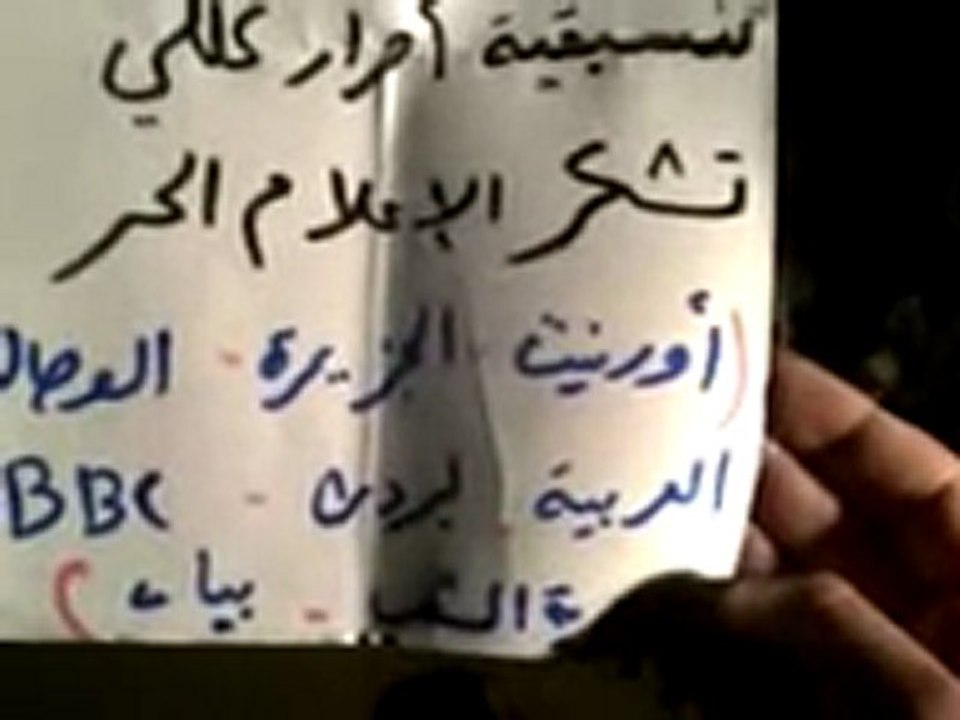 تنسيقية أحرار
تشكر الإعلام الحر
(أورينت - الجزيرة - الوصال
العربية - بردى - BBC